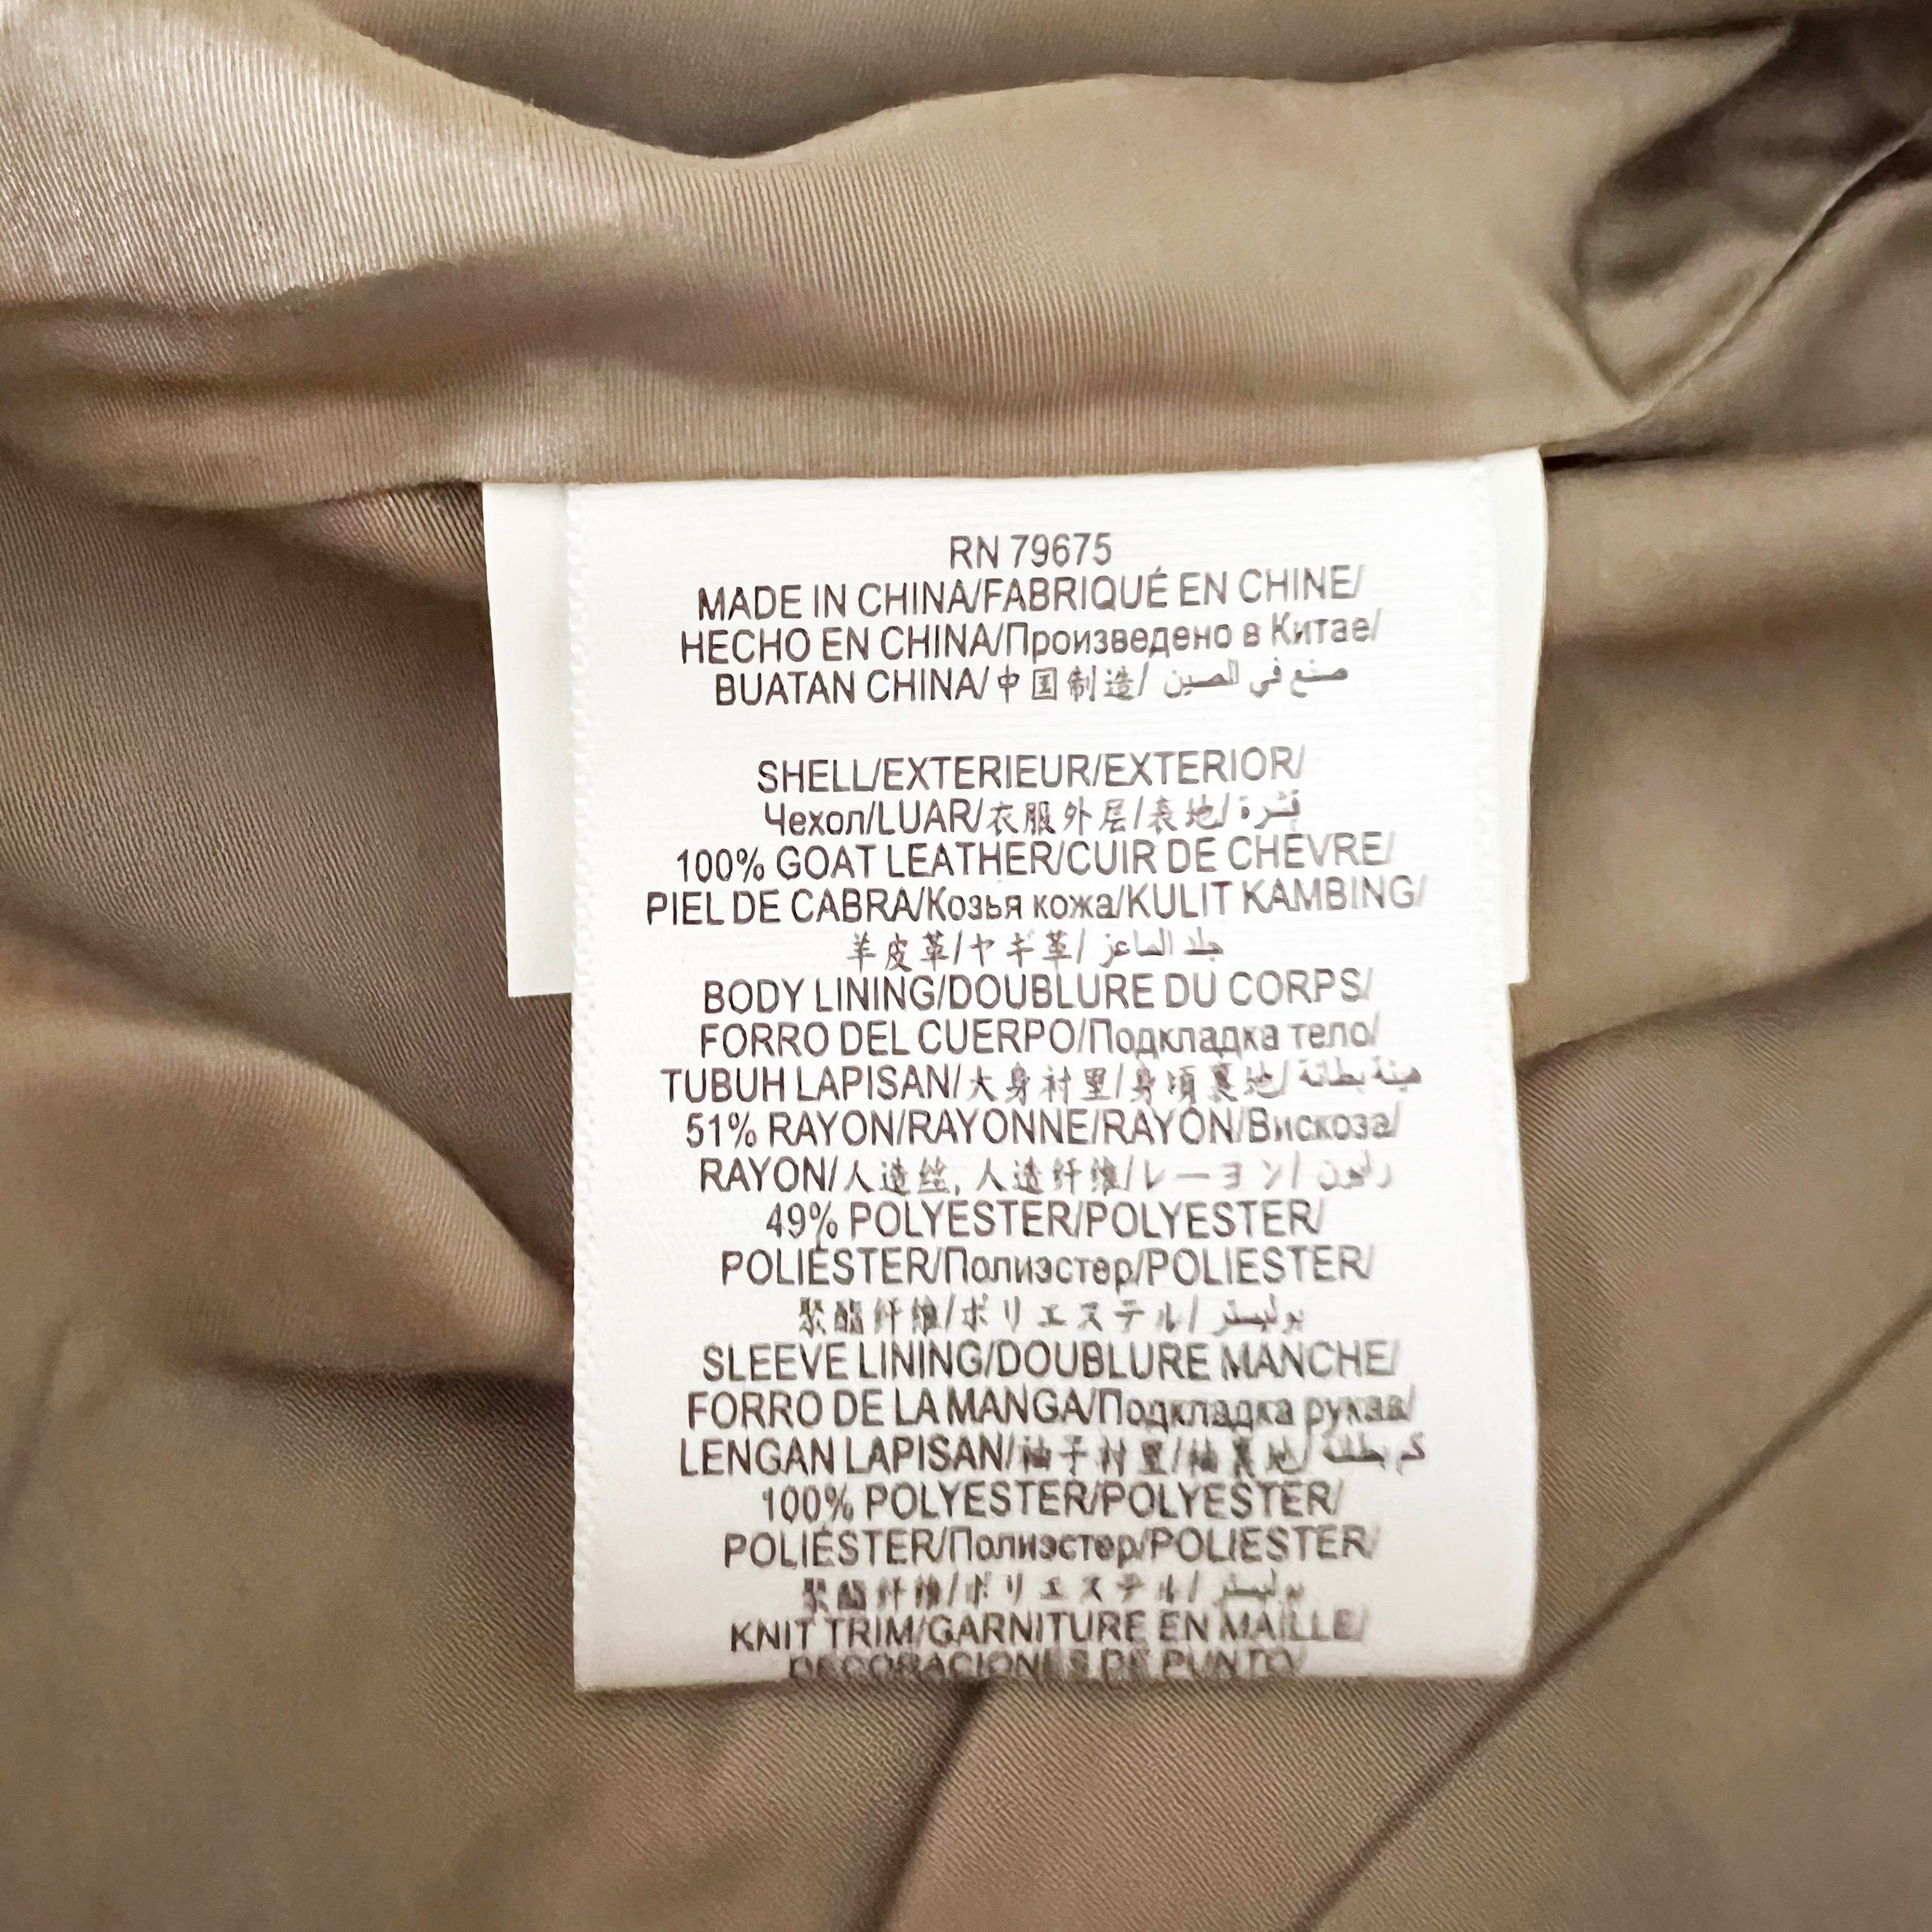 RN 79675
MADE IN CHINA/FABRIQUÉ EN CHINE/
HECHO EN CHINA/Произведено в Китае/
BUATAN CHINA/中国制造/ صنع في الصين
SHELL/EXTERIEUR/EXTERIOR/
Чехол/LUAR/衣服外层/表地/
100% GOAT LEATHER/CUIR DE CHEVRE/
PIEL DE CABRA/Козья кожа/KULIT KAMBING/
羊皮革/ヤギ革/ جلد الماعز
BODY LINING/DOUBLURE DU CORPS/
FORRO DEL CUERPO/Подкладка тело/
TUBUH LAPISAN/大身衬里/身頃裏地/ هيئة بطانة
51% RAYON/RAYONNE/RAYÓN/Вискоза/
RAYON/人造丝, 人造纤维/レーヨン/ رايون
49% POLYESTER/POLYESTER/
POLIÉSTER/Полиэстер/POLIESTER/
聚酯纤维/ポリエステル/ بوليستر
SLEEVE LINING/DOUBLURE MANCHE/
FORRO DE LA MANGA/Подкладка рукав/
LENGAN LAPISAN/袖子衬里/袖裏地/
100% POLYESTER/POLYESTER/
POLIÉSTER/Полиэстер/POLIESTER/
聚酯纤维/ポリエステル/ بوليستر
KNIT TRIM/GARNITURE EN MAILLE/
DECORACIONES DE PUNTO/